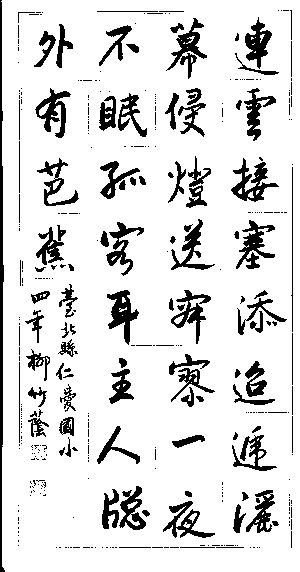 連雲接塞添迢遞灑
幕侵燈送寂寥一夜
不眠孤客耳主人牕
外有芭蕉
臺北縣仁愛國小
四年柳竹蔭